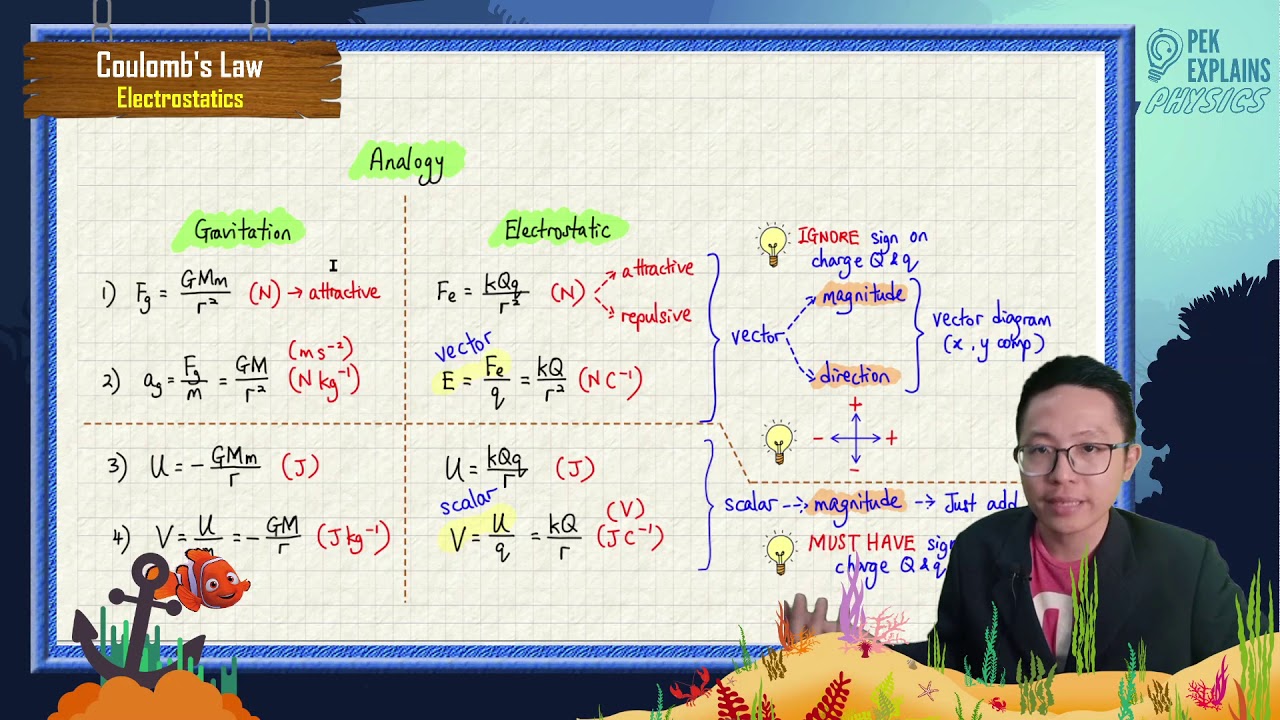 Coulomb's Law
Electrostatics
PEK
EXPLAINS
PHYSICS
Analogy
Gravitation
1) Fg = GMm/r² (N) → attractive
2) ag = Fg/m = GM/r² (ms⁻²) (N kg⁻¹)
3) U = - GMm/r (J)
4) V = U/m = - GM/r (J kg⁻¹)
Electrostatic
Fe = kQq/r² (N)
attractive
repulsive
vector
E = Fe/q = kQ/r² (N C⁻¹)
U = kQq/r (J)
scalar
V = U/q = kQ/r (V) (J C⁻¹)
IGNORE sign on
charge Q & q
vector
magnitude
direction
vector diagram
(x, y comp)
+
- +
-
scalar --> magnitude --> Just add
MUST HAVE sign
charge Q & q